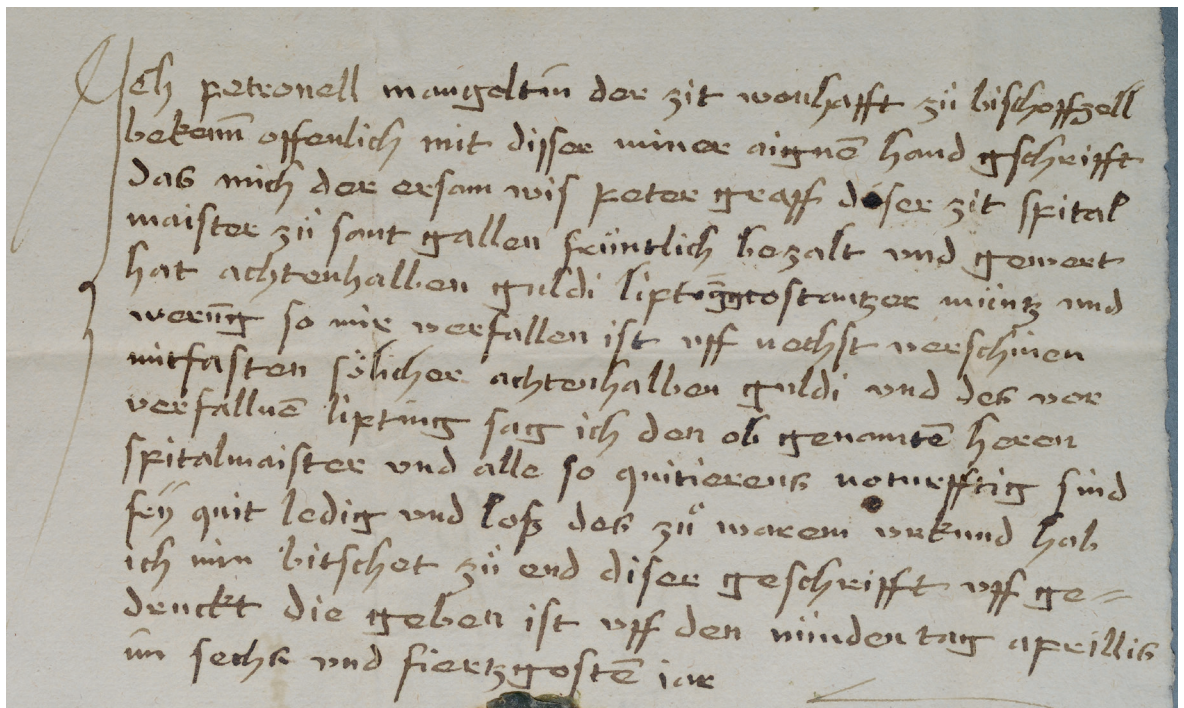 Ich petronell mangoltin der zit wonhafft zů bischoffzell
bekenn offenlich mit disser miner aignen hand gschrifft
das mich der ersam wis peter graff diser zit spital
maister zů sant gallen früntlich bezalt vnd gewert
hat achtenhalben guldi lipting costantzer müntz vnd
werung so mir verfallen ist vff nechst verschinen
mitfasten sölicher achtenhalben guldi vnd des ver
verfallnen lipting sag ich den ob genamten heren
spitalmaister vnd alle so quitierens noturfftig sind
fry quit ledig vnd loß des zů warem vrkund hab
ich min bitschet zů end diser geschrifft vff ge=
druckt die geben ist vff den nünden tag aprillis
im sechs vnd fiertzgosten iar